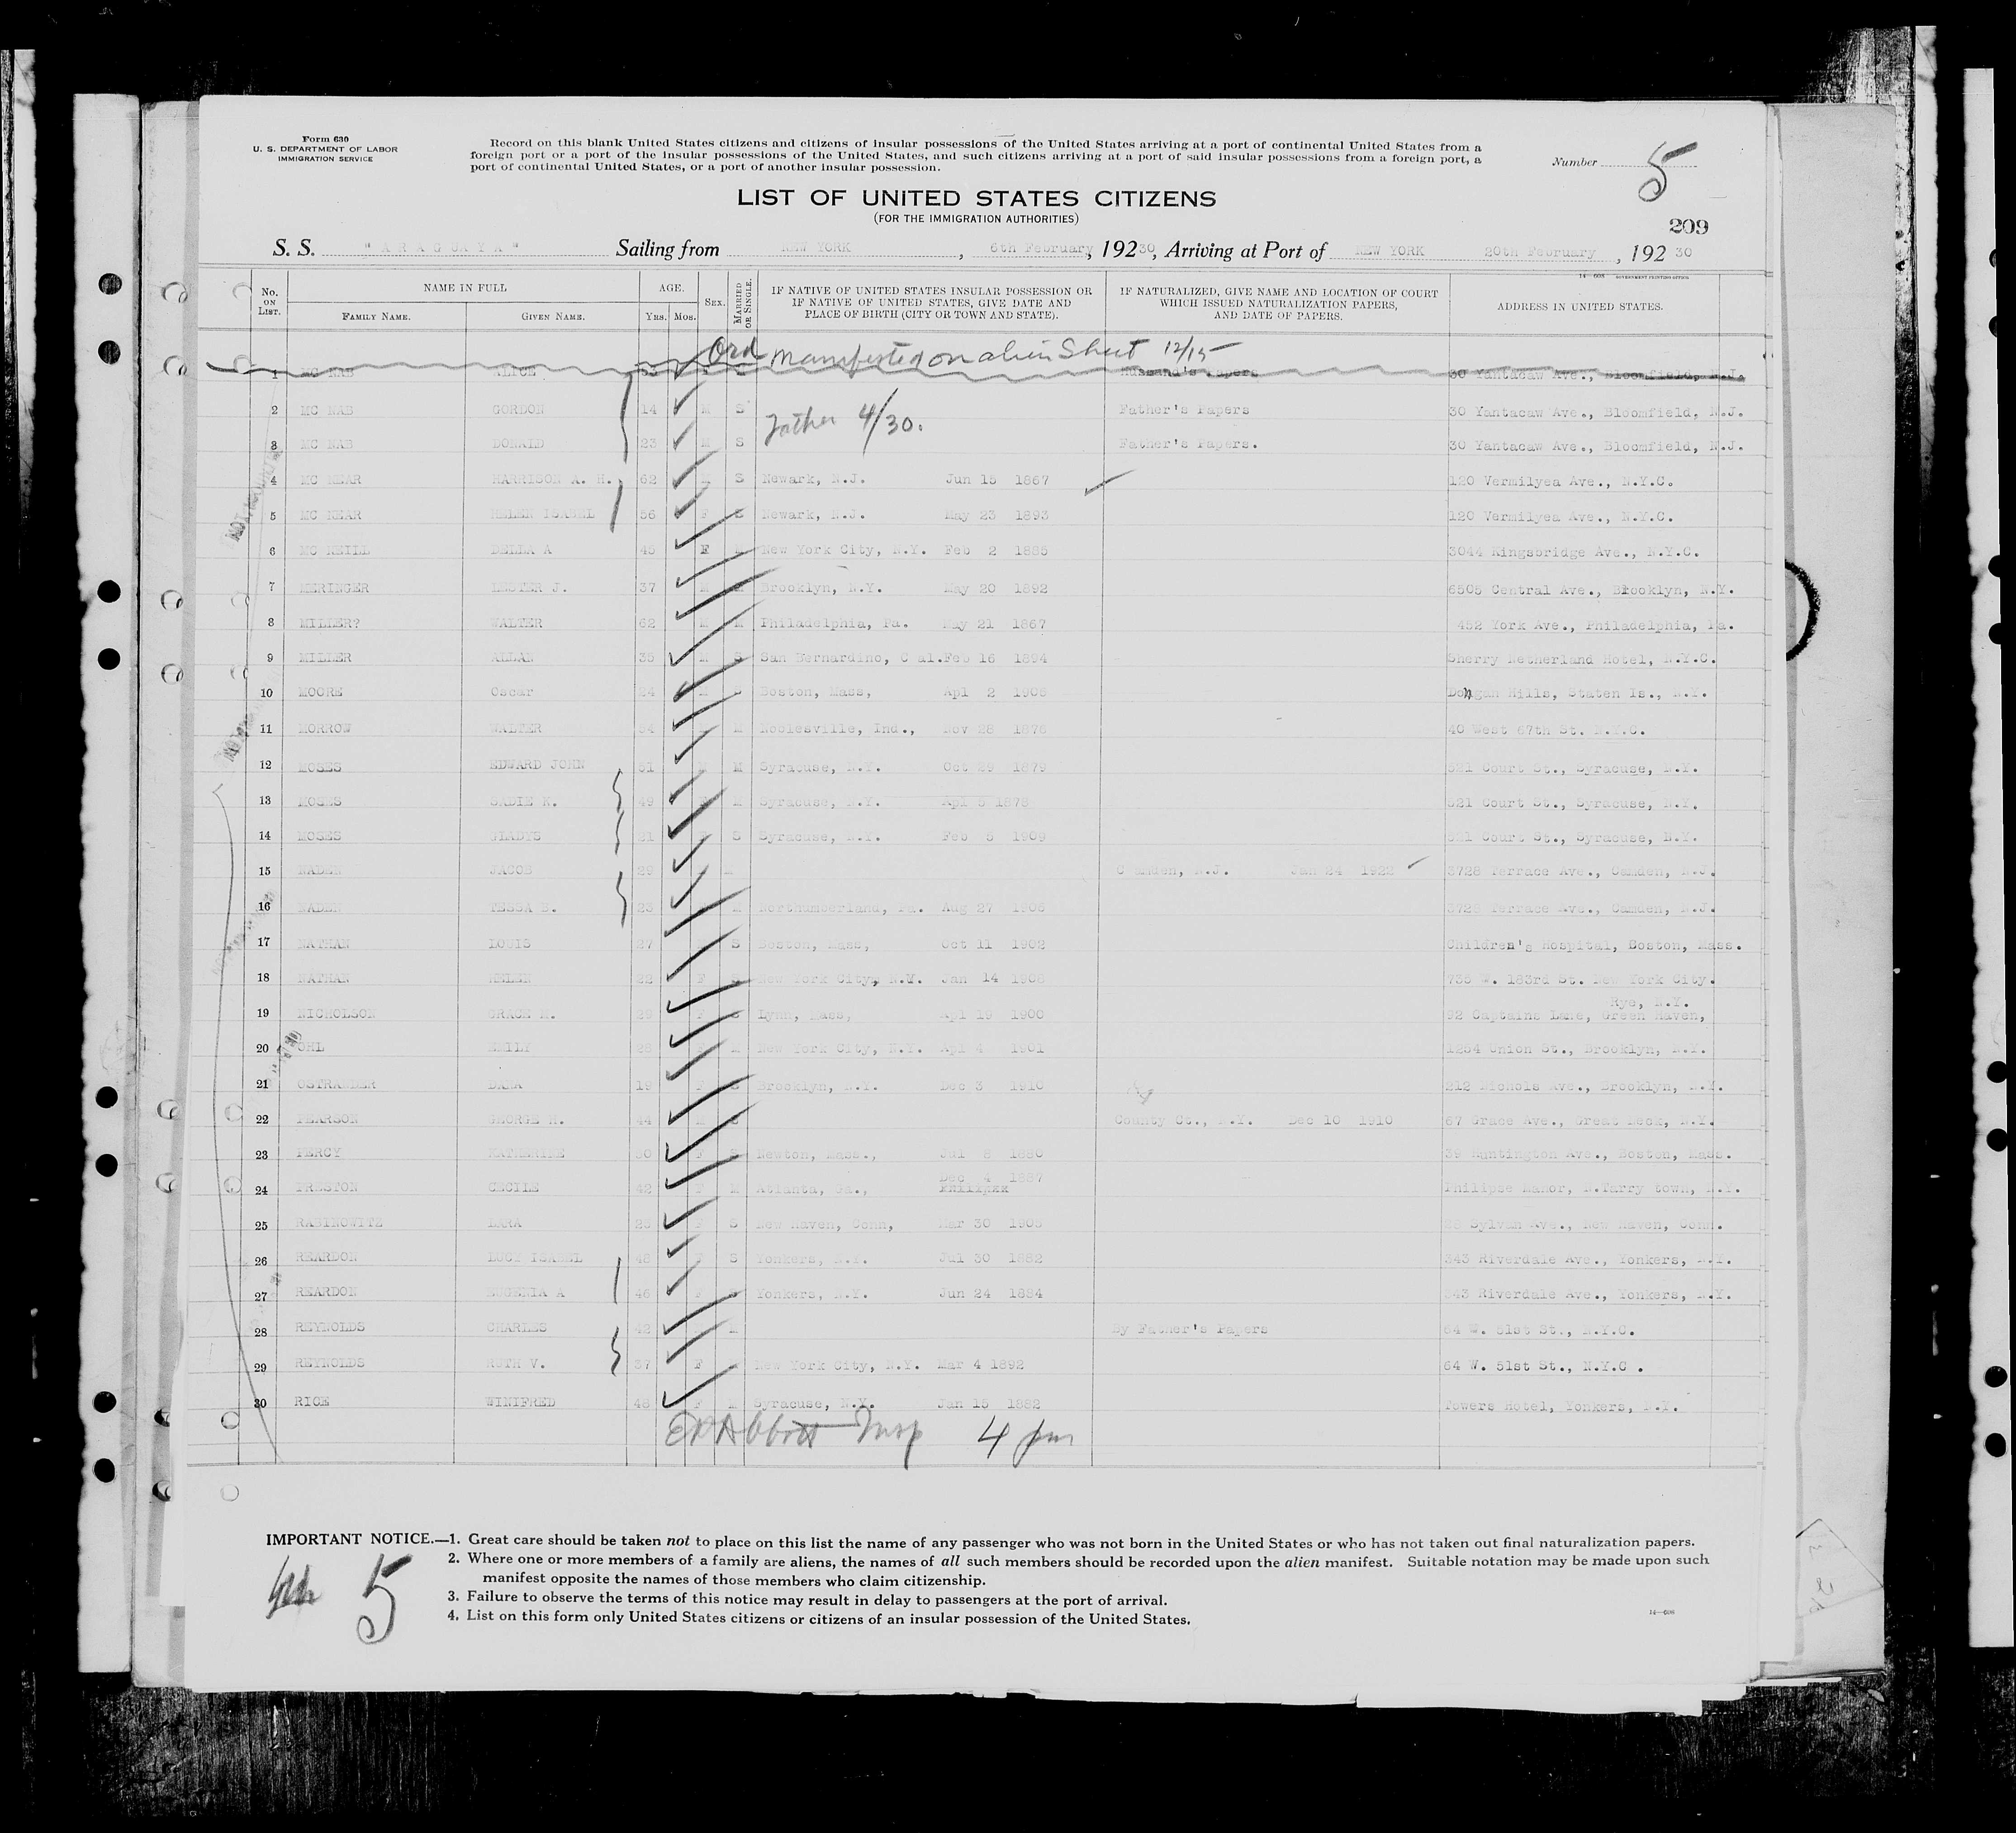 Form 630
U. S. DEPARTMENT OF LABOR
IMMIGRATION SERVICE
Record on this blank United States citizens and citizens of insular possessions of the United States arriving at a port of continental United States from a
foreign port or a port of the insular possessions of the United States, and such citizens arriving at a port of said insular possessions from a foreign port, a
port of continental United States, or a port of another insular possession.
Number 5
LIST OF UNITED STATES CITIZENS
(FOR THE IMMIGRATION AUTHORITIES)
209
S. S. "ARAGUAYA" Sailing from NEW YORK, 6th February, 19230, Arriving at Port of NEW YORK 20th February, 192 30
14—608 GOVERNMENT PRINTING OFFICE
No. ON LIST. NAME IN FULL AGE. SEX. MARRIED OR SINGLE. IF NATIVE OF UNITED STATES INSULAR POSSESSION OR IF NATIVE OF UNITED STATES, GIVE DATE AND PLACE OF BIRTH (CITY OR TOWN AND STATE). IF NATURALIZED, GIVE NAME AND LOCATION OF COURT WHICH ISSUED NATURALIZATION PAPERS, AND DATE OF PAPERS. ADDRESS IN UNITED STATES.
FAMILY NAME. GIVEN NAME. YRS. MOS.
Ord Manifested on alien Sheet 12/15
1 MC NAB ALICE Husband's Papers 30 Yantacaw Ave., Bloomfield, N.J.
2 MC NAB GORDON 14 M S Father's Papers 30 Yantacaw Ave., Bloomfield, N.J.
Father 4/30.
3 MC NAB DONALD 23 M S Father's Papers. 30 Yantacaw Ave., Bloomfield, N.J.
4 MC NEAR HARRISON A. H. 62 S Newark, N.J. Jun 15 1867 120 Vermilyea Ave., N.Y.C.
5 MC NEAR HELEN ISABEL 56 F S Newark, N.J. May 23 1893 120 Vermilyea Ave., N.Y.C.
6 MC NEILL DELLA A 45 F New York City, N.Y. Feb 2 1885 3044 Kingsbridge Ave., N.Y.C.
7 MERINGER LESTER J. 37 M Brooklyn, N.Y. May 20 1892 6505 Central Ave., Brooklyn, N.Y.
8 MILLER? WALTER 62 M M Philadelphia, Pa. May 21 1867 452 York Ave., Philadelphia, Pa.
9 MILLER ALLAN 35 M S San Bernardino, C al. Feb 16 1894 Sherry Netherland Hotel, N.Y.C.
10 MOORE Oscar 24 M Boston, Mass, Apl 2 Dongan Hills, Staten Is., N.Y.
11 MORROW WALTER 54 M Noblesville, Ind., Nov 28 40 West 67th St. N.Y.C.
12 MOSES EDWARD JOHN 51 M Syracuse, N.Y. Oct 29 1879 521 Court St., Syracuse, N.Y.
13 MOSES SADIE K. 49 M Syracuse, N.Y. Apl 5 521 Court St., Syracuse, N.Y.
14 MOSES GLADYS 21 S Syracuse, N.Y. Feb 1909 521 Court St., Syracuse, N.Y.
15 NADEN JACOB 29 M Camden, N.J. Jan 24 1922 3728 Terrace Ave., Camden, N.J.
16 NADEN TESSA B. 23 M Northumberland, Pa. Aug 27 1906 3728 Terrace Ave., Camden, N.J.
17 NATHAN LOUIS 27 S Boston, Mass, Oct 11 1902 Children's Hospital, Boston, Mass.
18 NATHAN HELEN 22 F S New York City, N.Y. Jan 14 1908 735 W. 183rd St. New York City.
Rye, N.Y.
19 NICHOLSON GRACE M. 29 F S Lynn, Mass, Apl 19 1900 92 Captains Lane, Green Haven,
20 OHL EMILY 28 M New York City, N.Y. Apl 1901 1234 Union St., Brooklyn, N.Y.
21 OSTRANDER 19 F S Brooklyn, N.Y. Dec 3 1910 212 Nichols Ave., Brooklyn, N.Y.
22 PEARSON GEORGE H. 44 County Ct., N.Y. Dec 10 1910 67 Grace Ave., Great Neck, N.Y.
23 PERCY KATHERINE F S Newton, Mass., Jul 8 39 Huntington Ave., Boston, Mass.
24 PRESTON CECILE 42 F M Atlanta, Ga., Dec 4 1887 Philipse Manor, N.Tarry town, N.Y.
25 RABINOWITZ F S New Haven, Conn, Mar 30 Sylvan Ave., New Haven, Conn.
26 REARDON LUCY ISABEL 48 F S Yonkers, N.Y. Jul 30 1882 343 Riverdale Ave., Yonkers, N.Y.
27 REARDON EUGENIA A 46 F Yonkers, N.Y. Jun 24 1884 343 Riverdale Ave., Yonkers, N.Y.
28 REYNOLDS CHARLES 42 M By Father's Papers 64 W. 51st St., N.Y.C.
29 REYNOLDS RUTH V. 37 F New York City, N.Y. Mar 4 1892 64 W. 51st St., N.Y.C .
30 RICE WINIFRED 48 F M Syracuse, N.Y. Jan 15 1882 Towers Hotel, Yonkers, N.Y.
Abbott Insp 4 pm
IMPORTANT NOTICE.—1. Great care should be taken not to place on this list the name of any passenger who was not born in the United States or who has not taken out final naturalization papers.
2. Where one or more members of a family are aliens, the names of all such members should be recorded upon the alien manifest. Suitable notation may be made upon such
manifest opposite the names of those members who claim citizenship.
3. Failure to observe the terms of this notice may result in delay to passengers at the port of arrival.
4. List on this form only United States citizens or citizens of an insular possession of the United States.
5
14—608